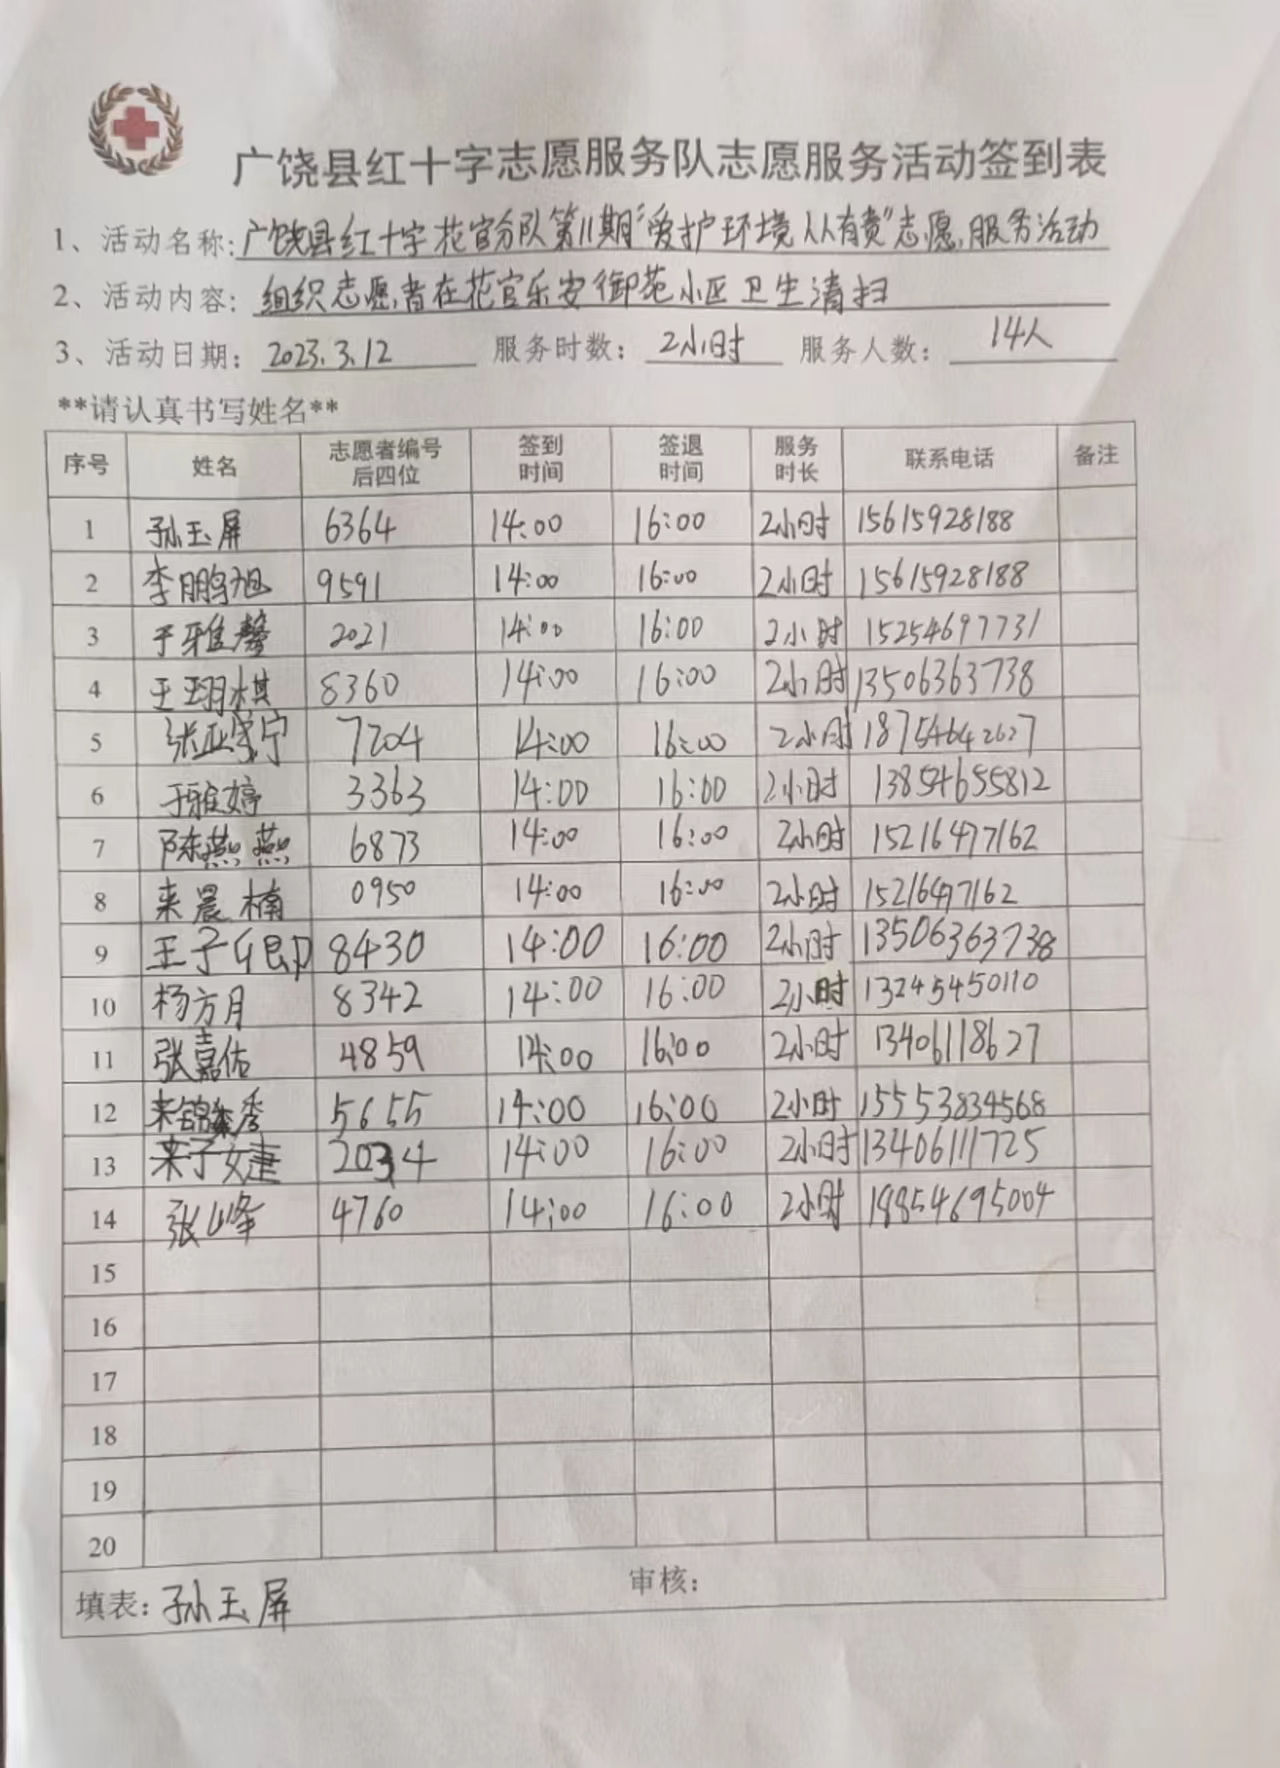 广饶县红十字志愿服务队志愿服务活动签到表
1、活动名称:广饶县红十字花官分队第11期"爱护环境人人有责"志愿服务活动
2、活动内容:组织志愿者在花官乐安御苑小区卫生清扫
3、活动日期:2023.3.12 服务时数:2小时 服务人数:14人
**请认真书写姓名**
序号 姓名 志愿者编号后四位 签到时间 签退时间 服务时长 联系电话 备注
1 孙玉屏 6364 14:00 16:00 2小时 15615928188
2 李鹏旭 9591 14:00 16:00 2小时 15615928188
3 于雅馨 2021 14:00 16:00 2小时 15254697731
4 王翊棋 8360 14:00 16:00 2小时 13506363738
5 14:00 16:00 2小时 7204 18754642627
6 于雅婷 3363 14:00 16:00 2小时 13854655812
7 陈燕燕 6873 14:00 16:00 2小时 15216477162
8 来晨楠 0950 14:00 16:00 2小时 15216477162
9 王子 8430 14:00 16:00 2小时 13506363738
10 杨方月 8342 14:00 16:00 2小时 13245450110
11 张嘉佑 4859 14:00 16:00 2小时 13406118627
12 来锦秀 5655 14:00 16:00 2小时 15553834568
13 来子婕 2034 14:00 16:00 2小时 13406111725
14 张山峰 4760 14:00 16:00 2小时 18854695004
15
16
17
18
19
20
填表:孙玉屏 审核: